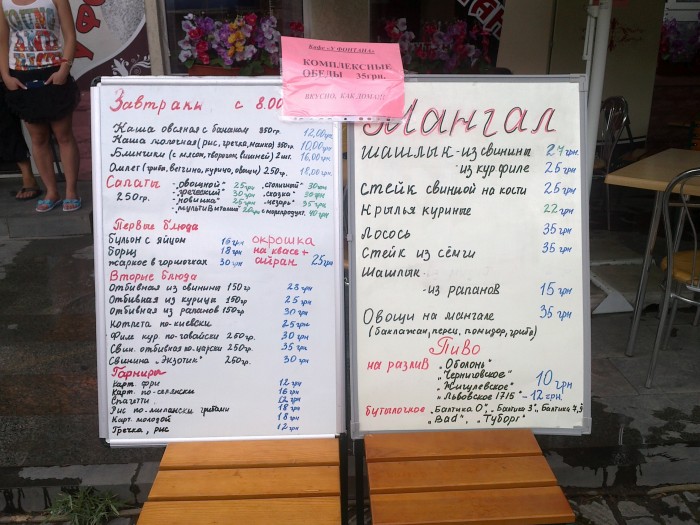 Кафе «У ФОНТАНА»
КОМПЛЕКСНЫЕ
ОБЕДЫ 35грн.
ВКУСНО, КАК ДОМА!!!
Завтраки с 8.00
Каша овсяная с бананом 350гр. 12,00грн
Каша молочная (рис, гречка, манка) 350гр. 10,00грн
Блинчики (с мясом, творогом, вишней) 2шт. 16,00грн
Омлет (грибы, ветчина, курица, овощи) 250гр. 18,00грн
Салаты
250гр.
"овощной" 25грн "столичный" 30грн
"греческий" 30грн "сказка" 30грн
"новинка" 25грн "цезарь" 35грн
"мультивитамин" 20грн с морепродукт. 40грн
Первые блюда
бульон с яйцом 15грн
борщ 18грн
жаркое в горшочках 30грн
окрошка
на квасе +
айран 25грн
Вторые блюда
Отбивная из свинины 150гр 28грн
Отбивная из курицы 150гр 25грн
Отбивная из рапанов 150гр 30грн
Котлета по-киевски 25грн
Филе кур. по-гавайски 250гр. 30грн
Свин. отбивная по-царски 250гр. 35грн
Свинина "Экзотик" 250гр. 30грн
Гарниры
Карт. фри 12грн
Карт. по-селянски 16грн
Спагетти 12грн
Рис по-милански с грибами 18грн
Карт. молодой 18грн
Гречка, рис 12грн
Мангал
Шашлык-из свинины 27грн.
из кур филе 25грн
Стейк свиной на кости 25грн.
Крылья куриные 22грн
Лосось 35грн
Стейк из сёмги 35грн.
Шашлык
-из рапанов 15грн
Овощи на мангале 35грн
(баклажан, перец, помидор, грибы)
Пиво
на разлив "Оболонь"
"Черниговское"
"Жигулевское" 10грн
"Львовское 1715" - 12грн.
бутылочное "Балтика 0", "Балтика 3", Балтика 7,9
"Bud", "Туборг"